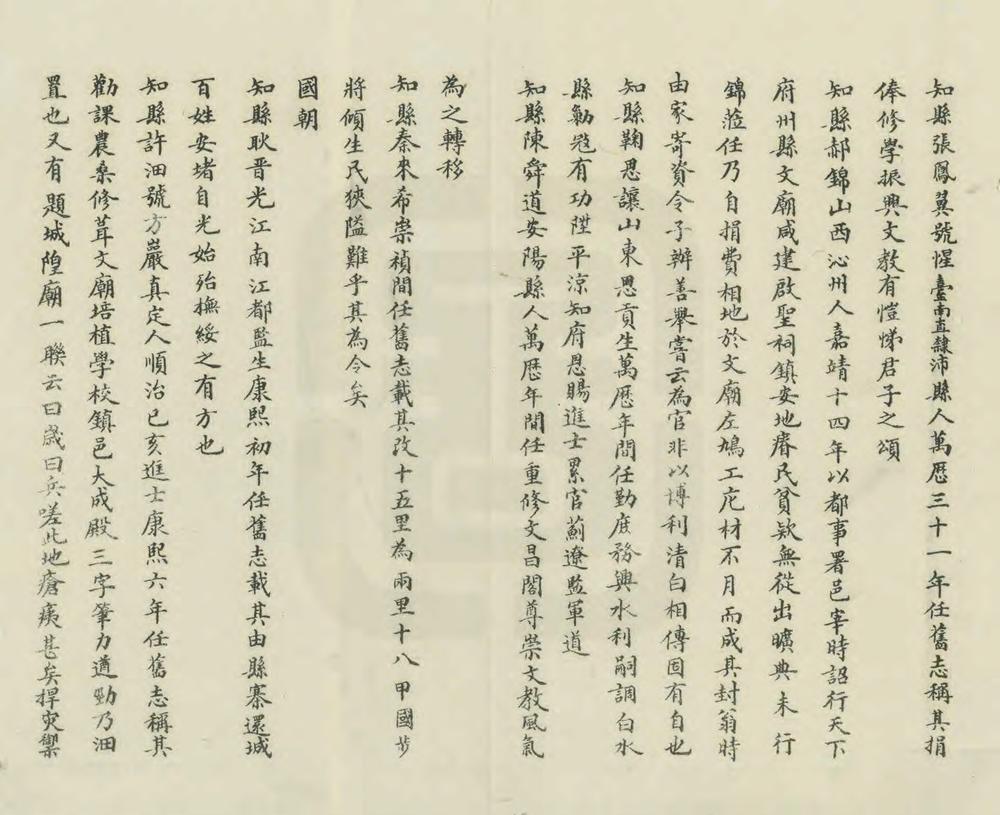 知縣張鳳翼號惺臺南直隸沛縣人萬歷三十一年任舊志稱其捐
俸修學振興文教有愷悌君子之頌
知縣郝錦山西沁州人嘉靖十四年以都事署邑宰時詔行天下
府州縣文廟咸建啟聖祠鎮安地瘠民貧欵無從出曠典未行
錦蒞任乃自捐費相地於文廟左鳩工庀材不月而成其封翁時
由家寄資令子辦善舉嘗云為官非以博利清白相傳固有自也
知縣鞠思讓山東恩貢生萬歷年間任勤庶務興水利嗣調白水
縣勦寇有功陞平涼知府恩賜進士累官薊遼監軍道
知縣陳舜道安陽縣人萬歷年間任重修文昌閣尊崇文教風氣
為之轉移
知縣秦來希崇禎間任舊志載其改十五里為兩里十八甲國步
將傾生民狹隘難乎其為令矣
國朝
知縣耿晋光江南江都監生康熙初年任舊志載其由縣寨還城
百姓安堵自光始殆撫綏之有方也
知縣許洄號方巖真定人順治己亥進士康熙六年任舊志稱其
勸課農桑修葺文廟培植學校鎮邑大成殿三字筆力遒勁乃洄
置也又有題城隍廟一聯云曰歲曰兵嗟此地瘡痍甚矣捍灾禦